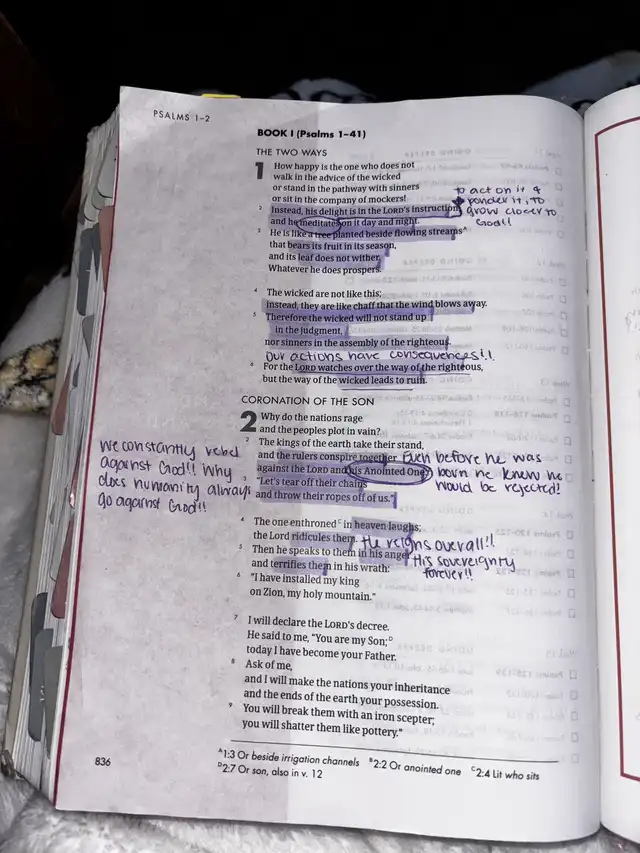 PSALMS 1–2
BOOK I (Psalms 1–41)
THE TWO WAYS
1 How happy is the one who does not
walk in the advice of the wicked
or stand in the pathway with sinners
or sit in the company of mockers!
2 Instead, his delight is in the LORD's instruction,
and he meditates on it day and night.
to act on it &
ponder it, to
grow closer to
God!!
3 He is like a tree planted beside flowing streams^A
that bears its fruit in its season,
and its leaf does not wither.
Whatever he does prospers.
4 The wicked are not like this;
instead, they are like chaff that the wind blows away.
5 Therefore the wicked will not stand up
in the judgment,
nor sinners in the assembly of the righteous.
our actions have consequences!!
6 For the LORD watches over the way of the righteous,
but the way of the wicked leads to ruin.
CORONATION OF THE SON
2 Why do the nations rage
and the peoples plot in vain?
2 The kings of the earth take their stand,
and the rulers conspire together
against the LORD and his Anointed One:^B
Even before he was
born he knew he
would be rejected!
3 "Let's tear off their chains
and throw their ropes off of us."
we constantly rebel
against God!! Why
does humanity always
go against God!!
4 The one enthroned^C in heaven laughs;
the Lord ridicules them.
5 Then he speaks to them in his anger
and terrifies them in his wrath:
He reigns overall!!
His sovereignty
forever!!
6 "I have installed my king
on Zion, my holy mountain."
7 I will declare the LORD's decree.
He said to me, "You are my Son;^D
today I have become your Father.
8 Ask of me,
and I will make the nations your inheritance
and the ends of the earth your possession.
9 You will break them with an iron scepter;
you will shatter them like pottery."
836
^A 1:3 Or beside irrigation channels ^B 2:2 Or anointed one ^C 2:4 Lit who sits
^D 2:7 Or son, also in v. 12